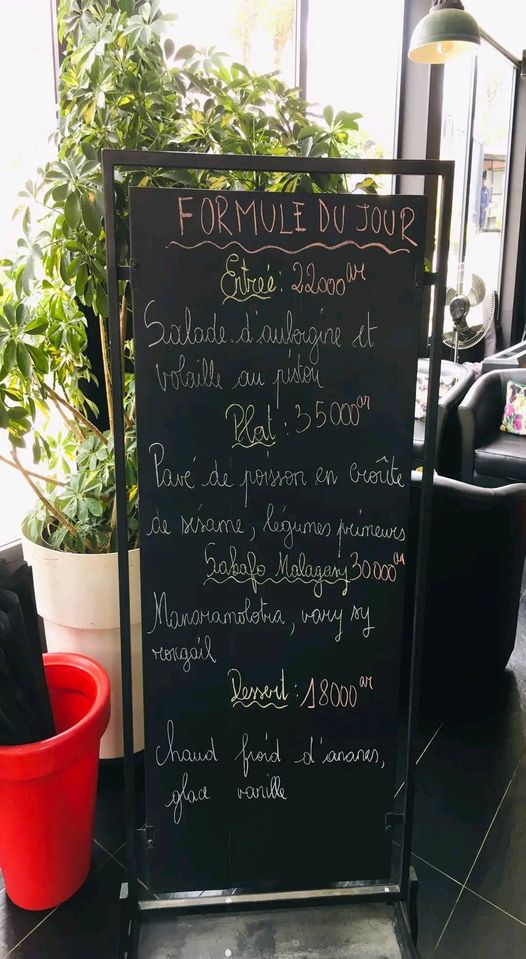 FORMULE DU JOUR
Entrée: 22000 ar
Salade d'aubergine et
volaille au pistou
Plat: 35000 ar
Pavé de poisson en croûte
de sésame, légumes primeurs
Sakafo Malagasy 30000 ar
Manaramolotra, vary sy
rougail
Dessert: 18000 ar
chaud froid d'ananas,
glace vanille